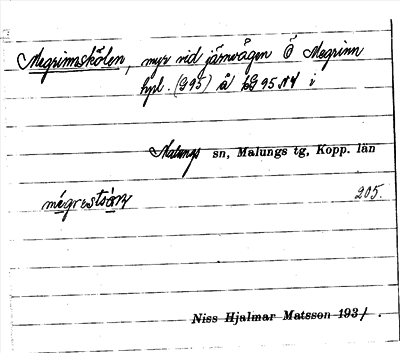 Megrimskölen, myr vid järnvägen Ö Megrinn
hpl. (G95) å bG 95 NV i
Malungs sn, Malungs tg, Kopp. län
205.
Niss Hjalmar Matsson 1931.